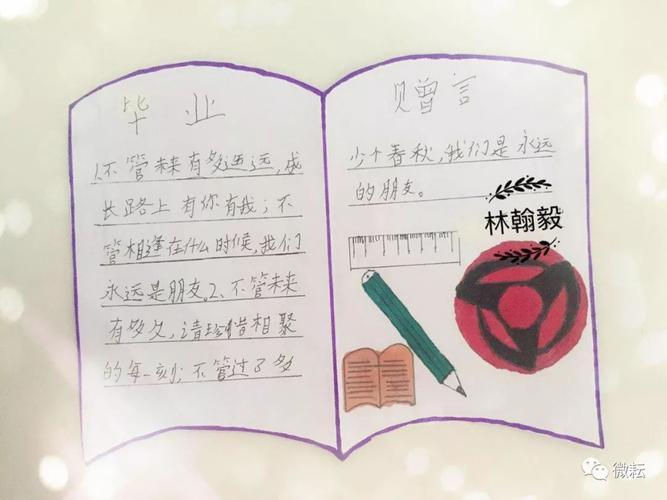 毕业
1、不管未来有多遥远,成
长路上有你有我;不
管相逢在什么时候,我们
永远是朋友。2、不管未来
有多久,请珍惜相聚
的每一刻;不管过了多
赠言
少个春秋,我们是永远
的朋友。
林翰毅
微耘